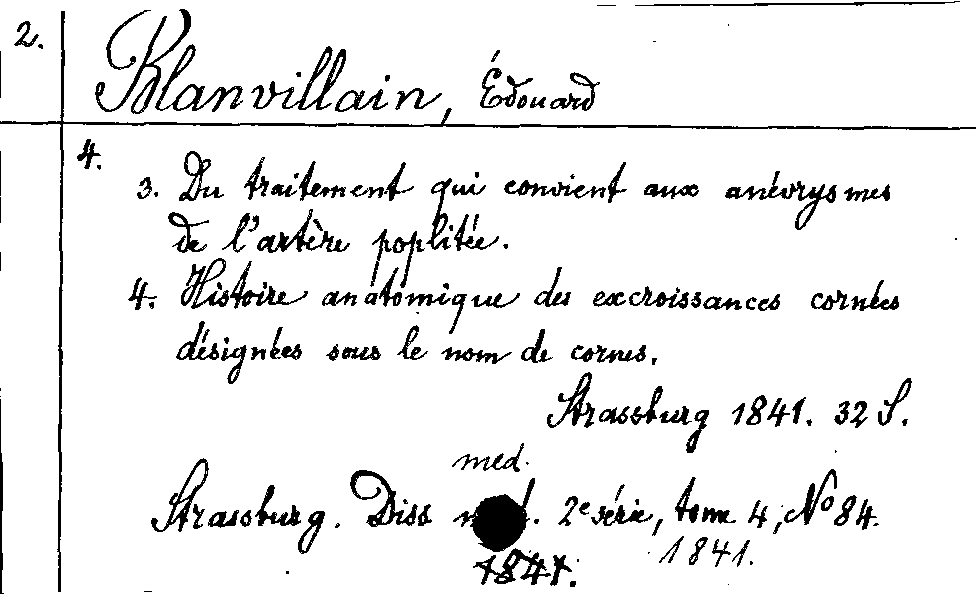 2.
Blanvillain, Édouard
4.
3. Du traitement qui convient aux anévrysmes
de l'artère poplitée.
4. Histoire anatomique des excroissances cornées
désignées sous le nom de cornes.
Strassburg 1841. 32 S.
med.
Strassburg. Diss . 2e série, tome 4, No 84.
1841.
1841.